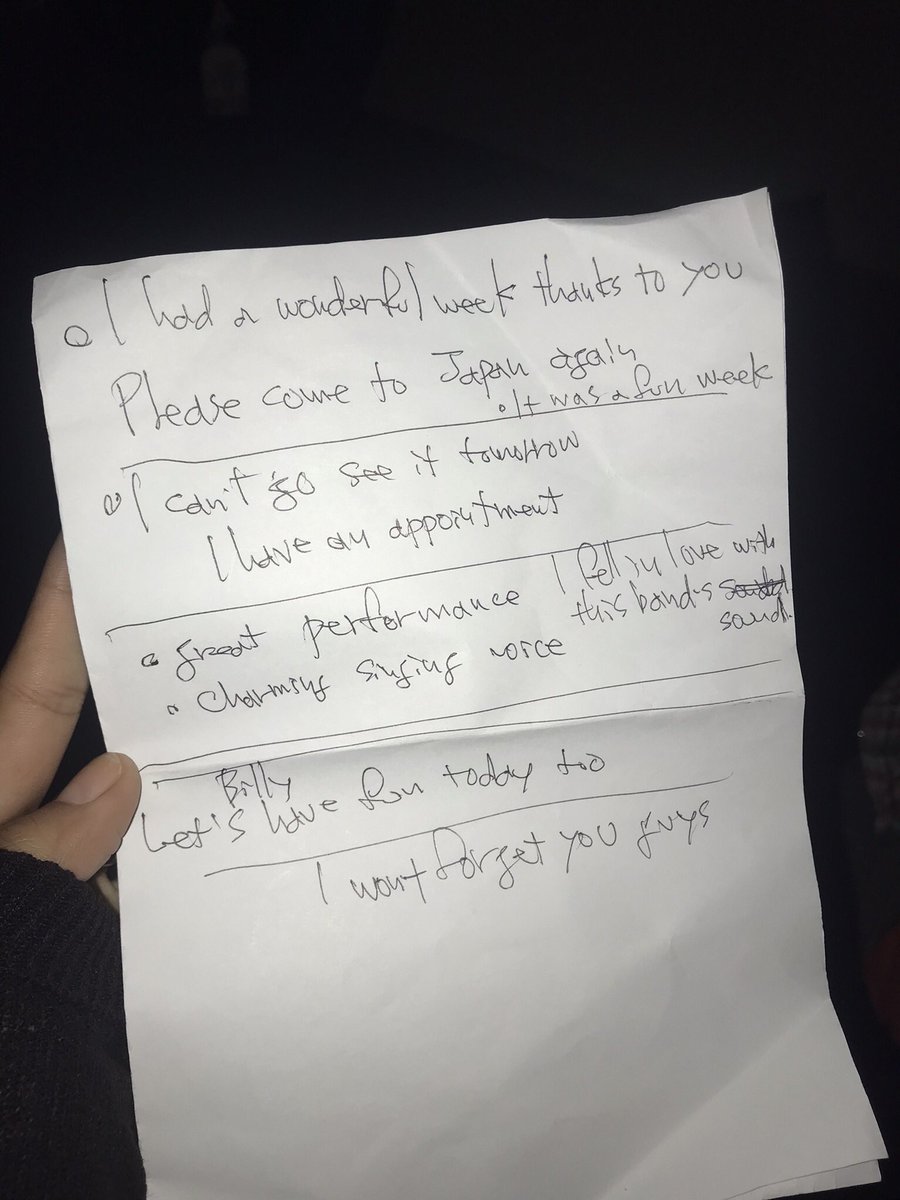 I had a wonderful week thanks to you
Please come to Japan again
It was a fun week
I can't go see it tomorrow
I have an appointment
great performance
I fell in love with
this band's
sound.
Charming singing voice
Billy
Let's have fun today too
I won't forget you guys